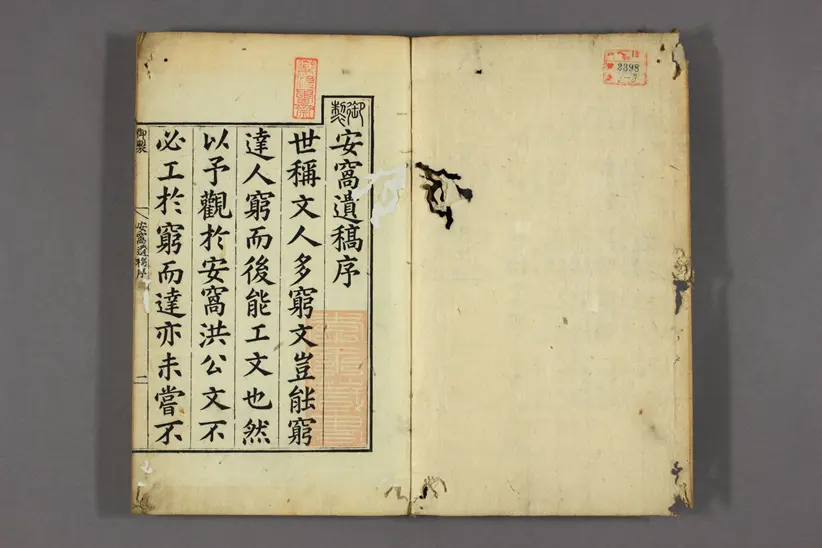 御製
安窩遺稿序
世稱文人多窮文豈能窮
達人窮而後能工文也然
以予觀於安窩洪公文不
必工於窮而達亦未嘗不
御製
安窩遺稿序
一
2398